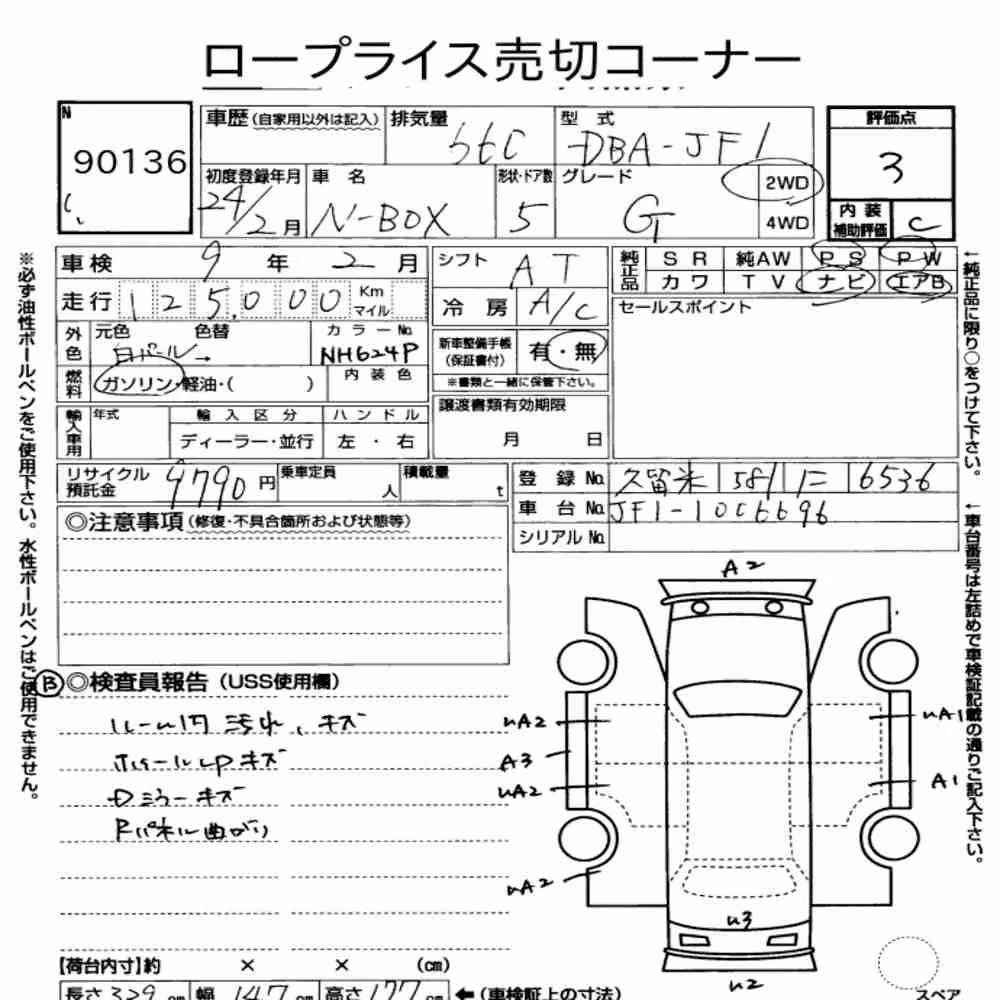 ロープライス売切コーナー
N
90136
車歴(自家用以外は記入)
排気量
型式
DBA-JF1
評価点
3
初度登録年月
24/2月
車名
N-BOX
形状・ドア数
5
グレード
G
2WD
4WD
内装
補助評価
C
車検 9年 2月
シフト
AT
純正品
SR 純AW PS PW
カワ TV ナビ エアB
走行 125,000 Km
マイル
冷房
A/C
セールスポイント
外色
元色
色替
カラーNo.
白パール→
NH624P
新車整備手帳
(保証書付)
有・無
※書類と一緒に保管下さい。
燃料
ガソリン・軽油・( )
内装色
譲渡書類有効期限
月 日
輸入車用
年式
輸入区分
ハンドル
ディーラー・並行
左・右
リサイクル
預託金
9790円
乗車定員
人
積載量
t
登録No.
久留米 581 に 6536
車台No.
シリアルNo.
◎注意事項(修復・不具合箇所および状態等)
※必ず油性ボールペンをご使用下さい。水性ボールペンはご使用できません。
←純正品に限り○をつけて下さい。
←車台番号は左詰めで車検証記載の通りご記入下さい。
B
◎検査員報告(USS使用欄)
ルーム内汚れ、キズ
ホイールLPキズ
Dミラーキズ
Rパネル曲がり
A2
UA2
UA1
A3
UA2
A1
UA2
U3
U2
【荷台内寸】約 × × (cm)
スペア
長さ329cm 幅147cm 高さ177cm ←(車検証上の寸法)